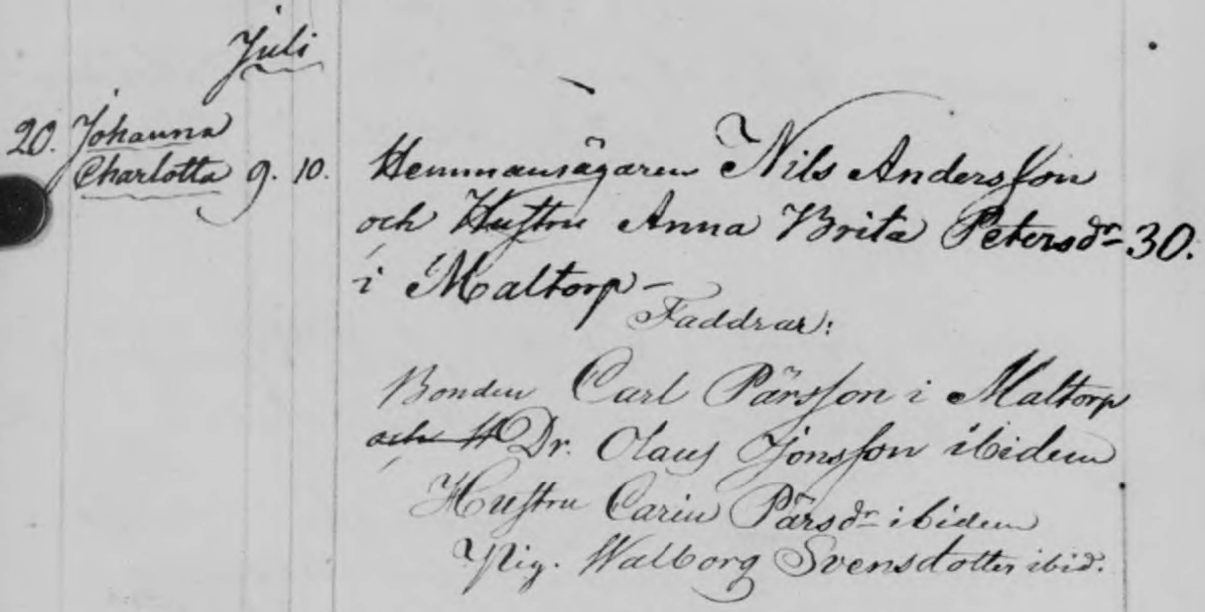 Juli
20. Johanna
Charlotta 9. 10. Hemmansägaren Nils Andersson
och Hustru Anna Brita Petersdr 30.
i Maltorp -
Faddrar:
Bonden Carl Pärsson i Maltorp
och H Dr. Olaus Jonsson ibidem
Hustru Carin Pärsdr ibidem
Pig. Walborg Svensdotter ibid.